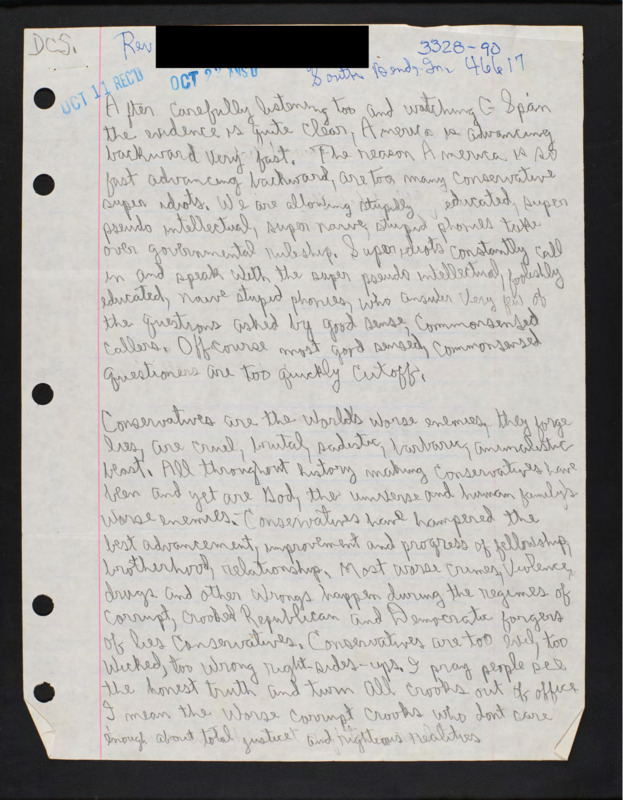 DCS. Rev 3328-90
OCT 11 REC'D OCT 22 South Bend, In. 46617
After carefully listening too and watching C-Span
the evidence is quite clear, America is advancing
backward very fast. The reason America is so
fast advancing backward, are too many conservative
super idiots. We are allowing stupidly educated, super
pseudo intellectual, super naive, stupid phonies take
over governmental rulership. Superidiots constantly call
in and speak with the super pseudo intellectual, foolishly
educated, naive stupid phonies, who answer very few of
the questions asked by good sense, commonsensed
callers. Offcourse most good sensed, commonsensed
questioners are too quickly cutoff.
Conservatives are the world's worse enemies, they forge
lies, are cruel, brutal, sadistic, barbaric, animalistic
beast. All throughout history making Conservatives have
been and yet are God, the universe and human family's
worse enemies. Conservatives have hampered the
best advancement, improvement and progress of fellowship,
brotherhood, relationship. Most worse crimes, violence,
drugs and other wrongs happen during the regimes of
corrupt, crooked Republican and Democratic forgers
of lies Conservatives. Conservatives are too evil, too
wicked, too wrong right-sides-ups. I pray people see
the honest truth and turn all crooks out of office
I mean the worse corrupt crooks who dont care
enough about total justice and righteous realities